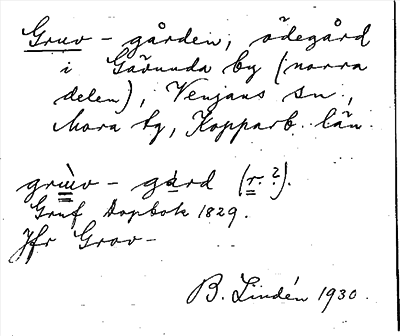 Gruv-gården, ödegård
i Gävunda by (norra
delen), Venjans sn.,
Mora tg, Kopparb. län.
grùv-gàrd (r.?).
Gruf Dopbok 1829.
Jfr Grov-
B. Lindén 1930.